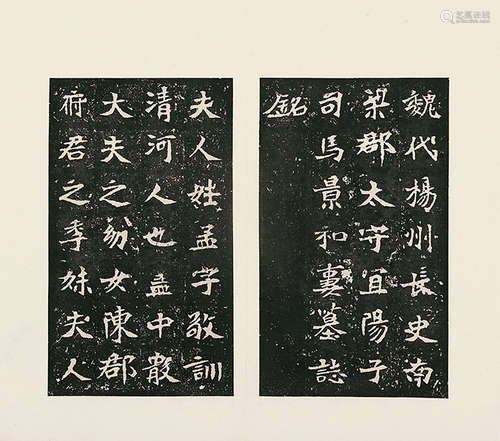 魏代楊州長史南
梁郡太守宜陽子
司馬景和妻墓誌
銘
夫人姓孟字敬訓
清河人也盖中散
大夫之幼女陳郡
府君之季妹夫人